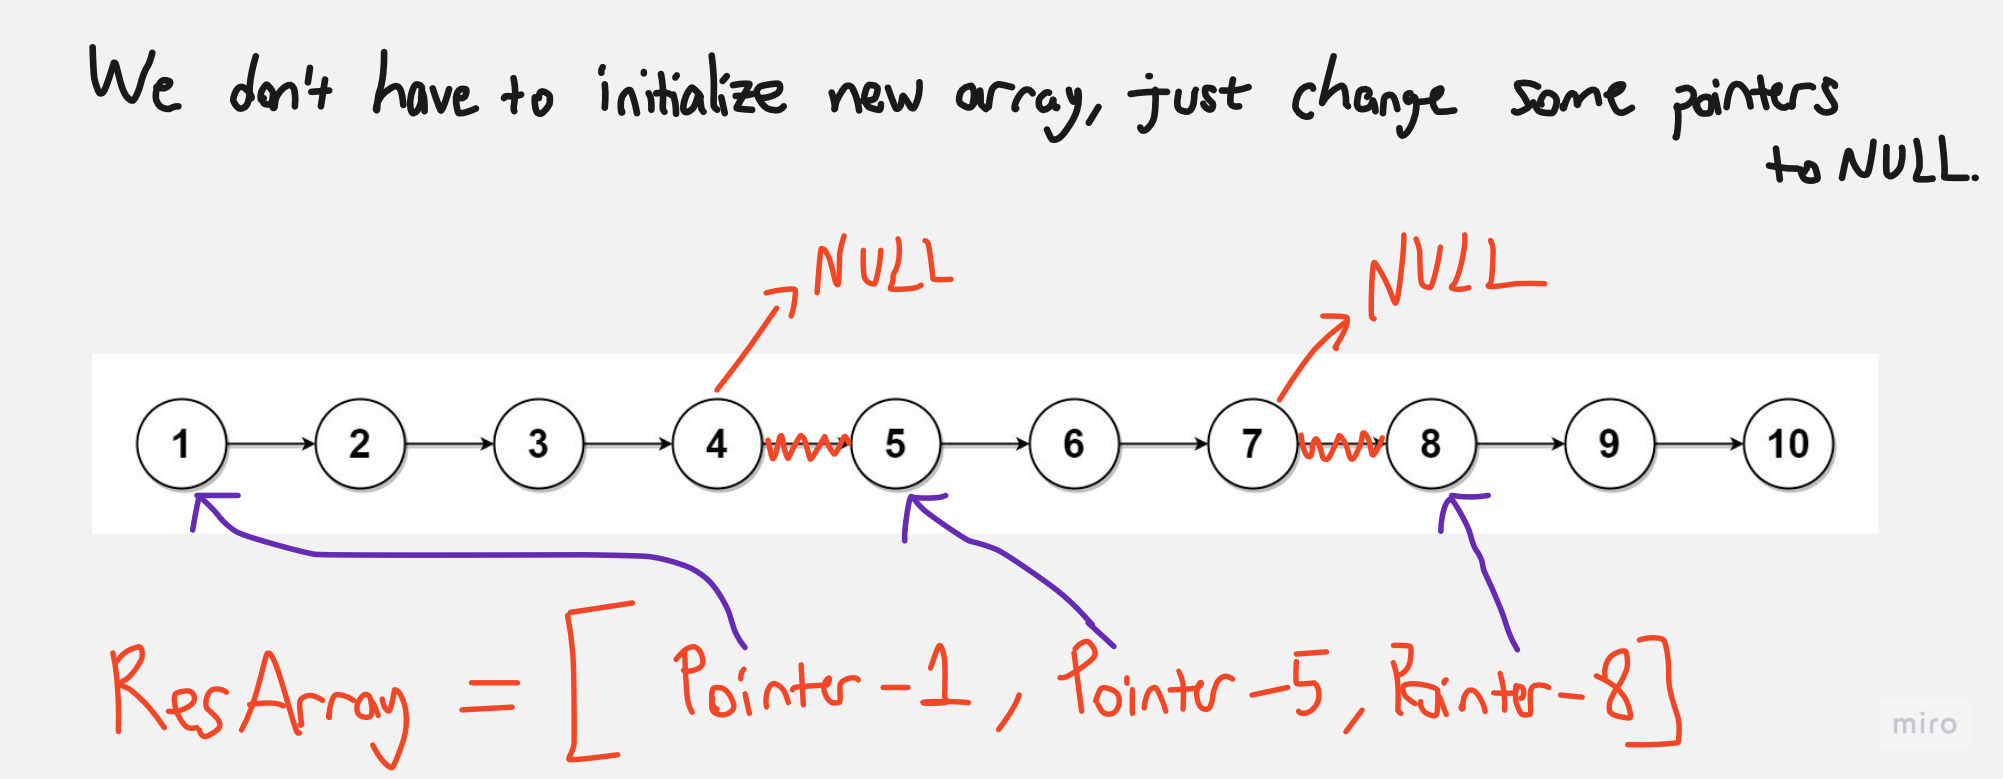 We don't have to initialize new array, just change some pointers
to NULL.
NULL NULL
1 2 3 4 5 6 7 8 9 10
ResArray = [ Pointer-1, Pointer-5, Pointer-8]
miro